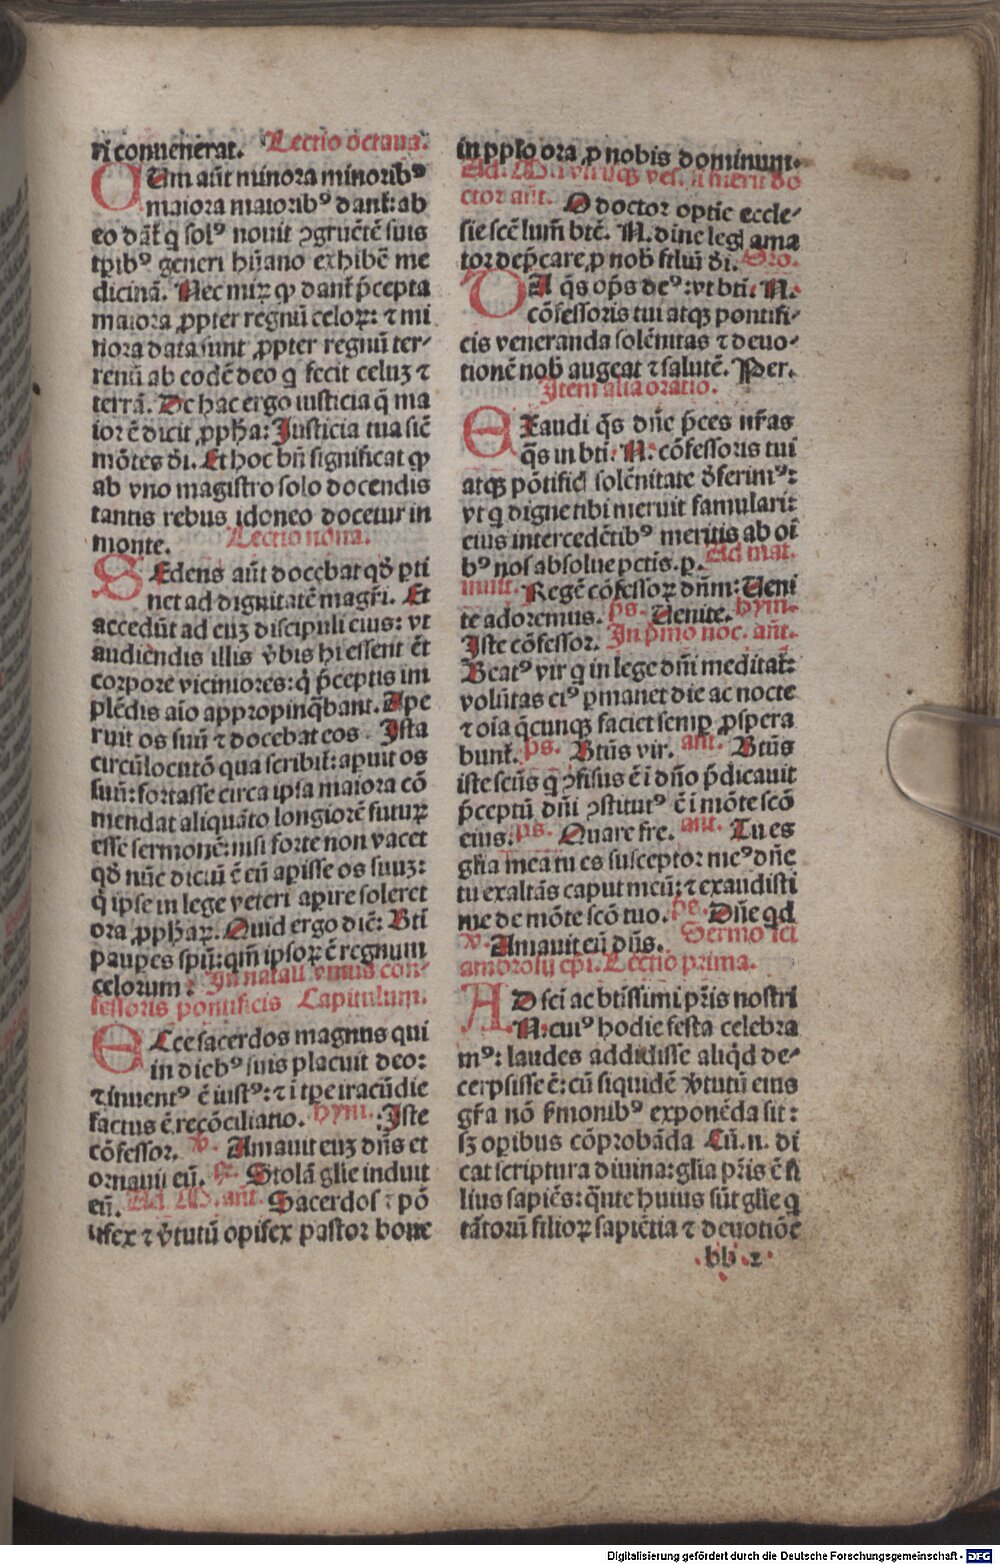 ri conuenerat. Lectio octaua.
CUm aūt minora minoribꝰ
maiora maioribꝰ dant᷑: ab
eo dāt᷑ q̇ solꝰ nouit ꝯgruētē suis
tp̄ibꝰ generi hūano exhibē me
dicinā. Nec miꝝ ꝙ dant᷑ p̄cepta
maiora ꝓpter regnū celoꝝ: ⁊ mi
nora data sunt ꝓpter regnū ter⸗
renū ab eodē deo q̇ fecit celuꝫ ⁊
terrā. De hac ergo iusticia q̄ ma
ior ē dicit ꝓph̄a: Justicia tua sic̄
mōtes d̄i. Et hoc bn̄ significat ꝙ
ab vno magistro solo docendis
tantis rebus idoneo docetur in
monte. Lectio nona.
SEdens aūt docebat qd̄ ꝑti
net ad dignitatē magr̄i. Et
accedūt ad euꝫ discipuli eius: vt
audiendis illis v̄bis hi essent ēt
corpore viciniores: q̇ p̄ceptis im
plēdis aīo appropinq̄bant. Ape
ruit os suū ⁊ docebat eos. Ista
circūlocutō qua scribit᷑: apuit os
suū: fortasse circa ipsa maiora cō
mendat aliquāto longiorē futuꝝ
esse sermonē: nisi forte non vacet
qd̄ nūc dictū ē eū apisse os suuꝫ:
q̇ ipse in lege veteri apire soleret
ora ꝓph̄aꝝ. Quid ergo dic̄: Bt̄i
pauꝑes spū: qm̄ ipsoꝝ ē regnum
celorum: In natali vnius con⸗
fessoris pontificis Capitulum.
ECce sacerdos magnus qui
in diebꝰ suis placuit deo:
⁊ inuentꝰ ē iustꝰ: ⁊ ī tp̄e iracūdie
factus ē recōciliatio. hym. Iste
cōfessor. v. Amauit euꝫ dn̄s et
ornauit eū. Stolā gl̄ie induit
eū. Ad M. ant. Sacerdos ⁊ pō
tifex ⁊ v̄tutū opifex pastor bone
in pp̄lo ora ꝓ nobis dominum.
ctor aūt. O doctor optīe eccle⸗
sie scē̄ lum̄ btē. N. diuīe legl̄ ama
tor dep̄care ꝓ nob̄ filiū d̄i. Oro.
DA q̄s op̄s deꝰ: vt bt̄i. N.
cōfessoris tui atqꝫ pontifi⸗
cis veneranda solēnitas ⁊ deuo⸗
tionē nob̄ augeat ⁊ salutē. Per.
Item alia oratio.
EXaudi q̄s dn̄e p̄ces nr̄as
q̄s in bt̄i. N. cōfessoris tui
atqꝫ pōtificl̄ solēnitate d̄ferimꝰ:
vt q̇ digne tibi meruit famulari:
eius intercedētibꝰ meritis ab oī
bꝰ nos absolue pctīs. p. Ad mat.
inuit. Regē cōfessoꝝ dn̄m: Ueni
te adoremus. ps. Uenite. hym.
Iste cōfessor. In p̄mo noc. ant.
Beatꝰ vir q̇ in lege dn̄i meditat᷑:
volūtas eiꝰ ꝑmanet die ac nocte
⁊ oīa q̄cunqꝫ faciet semꝑ ꝓspera
bunt᷑. ps. Bt̄us vir. ant. Bt̄us
iste scūs q̇ ꝯfisus ē ī dn̄o p̄dicauit
p̄ceptū dn̄i ꝯstitutꝰ ē ī mōte scō
eius. ps. Quare fre. ant. Tu es
gl̄ia mea tu es susceptor meꝰ dn̄e
tu exaltās caput meū: ⁊ exaudisti
me de mōte scō tuo. ps. Dn̄e qd
v. Amauit eū dn̄s. Sermo sci
ambrosij ep̄i. Lectio prima.
AD scī ac btīssimi pr̄is nostri
N. cuiꝰ hodie festa celebra
mꝰ: laudes addidisse aliqd̄ de⸗
cerpsisse ē: cū siquidē v̄tutū eius
gr̄a nō ẜmonibꝰ exponēda sit:
sꝫ oꝑibus cōprobāda Cū. n. di
cat scriptura diuina: gl̄ia pr̄is ē fi
lius sapiēs: q̄nte huius sūt gl̄ie q̇
tātoꝝ filioꝝ sapiētia ⁊ deuotiōe
bb 1
Digitalisierung gefördert durch die Deutsche Forschungsgemeinschaft - DFG